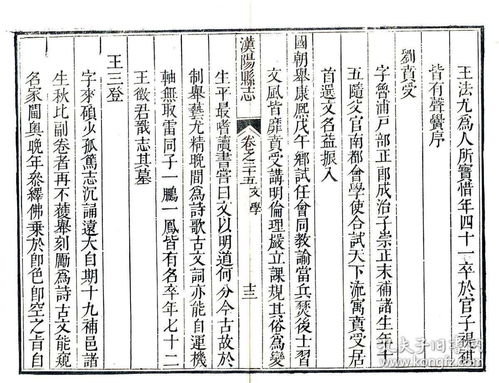 王法尤為人所寶惜年四十一卒於官子視祺
皆有聲黌序
劉賁受
字魯浦戸部正郎成治子崇正末補諸生年十
五隨父官南都會學使合試天下流寓賁受居
首選文名益振入
國朝舉康熙戊午鄉試任會同教諭當兵燹後士習
文風皆靡賁受講明倫理嚴立課規其俗為變
漢陽縣志
卷之二十五 文學
十三
生平最嗜讀書嘗曰文以明道何分今古故於
制舉藝尤精晚間為詩歌古文詞亦能自運機
軸無取雷同子一鵬一鳳皆有名卒年七十二
王徵君戩志其墓
王三登
字來碩少孤篤志沉誦遺大自期十九補邑諸
生秋比副卷者再不獲舉刻勵為詩古文能窺
名家閫奥晚年叅繹佛乗於卽色卽空之旨自
孔夫子旧书网
kongfz.com